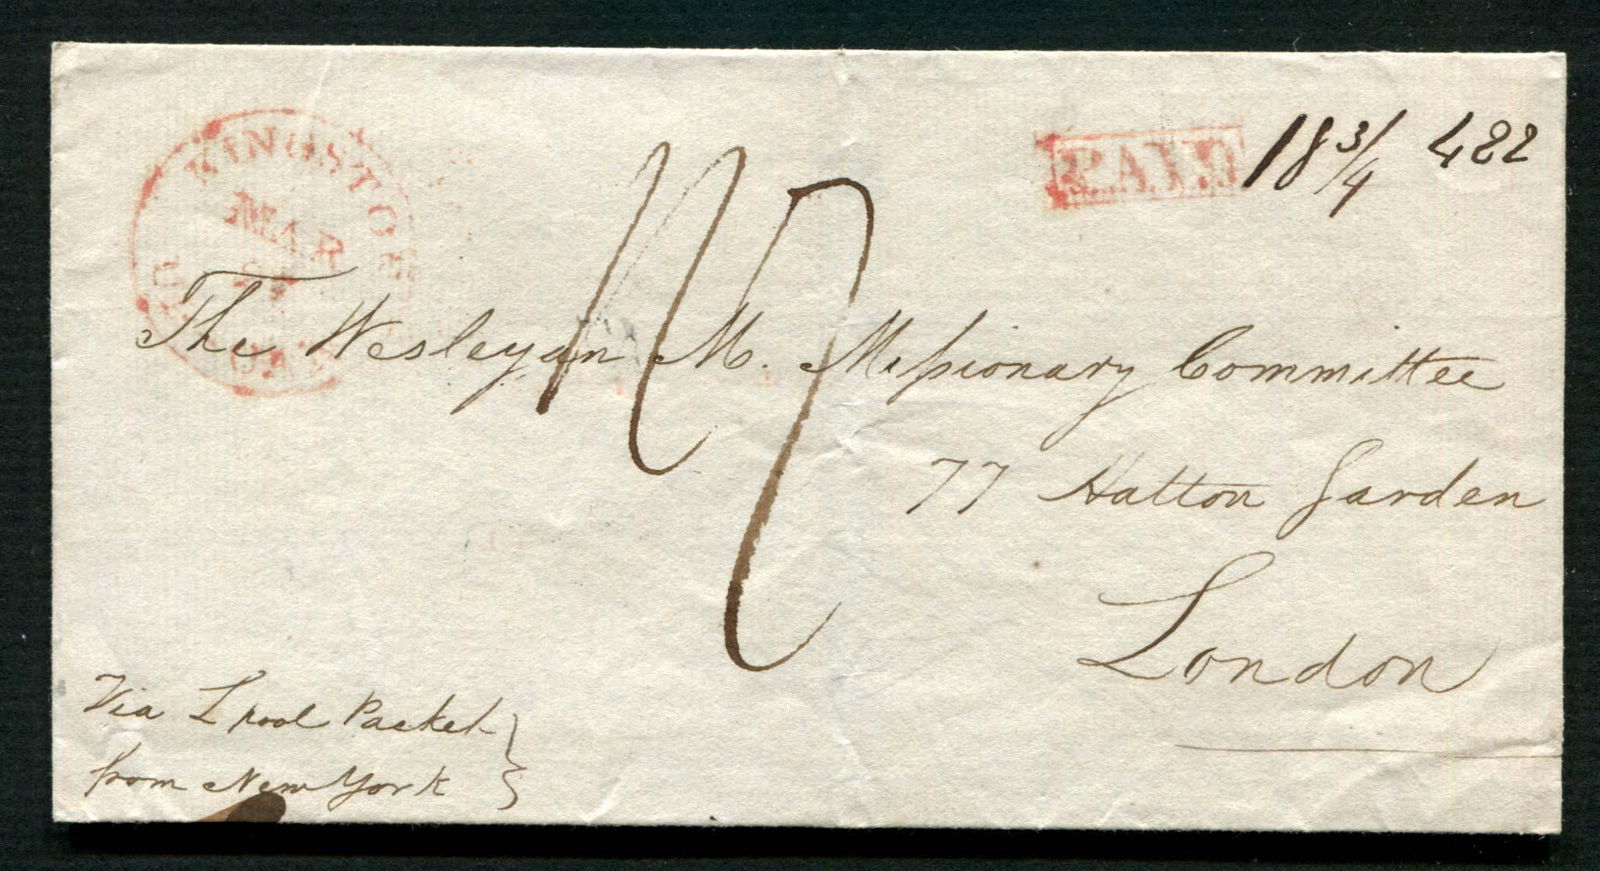 KINGSTON
MAR
PAID
18 3/4 482
The Wesleyan M. Missionary Committee
77 Hatton Garden
London
Via Lpool Packet
from New York